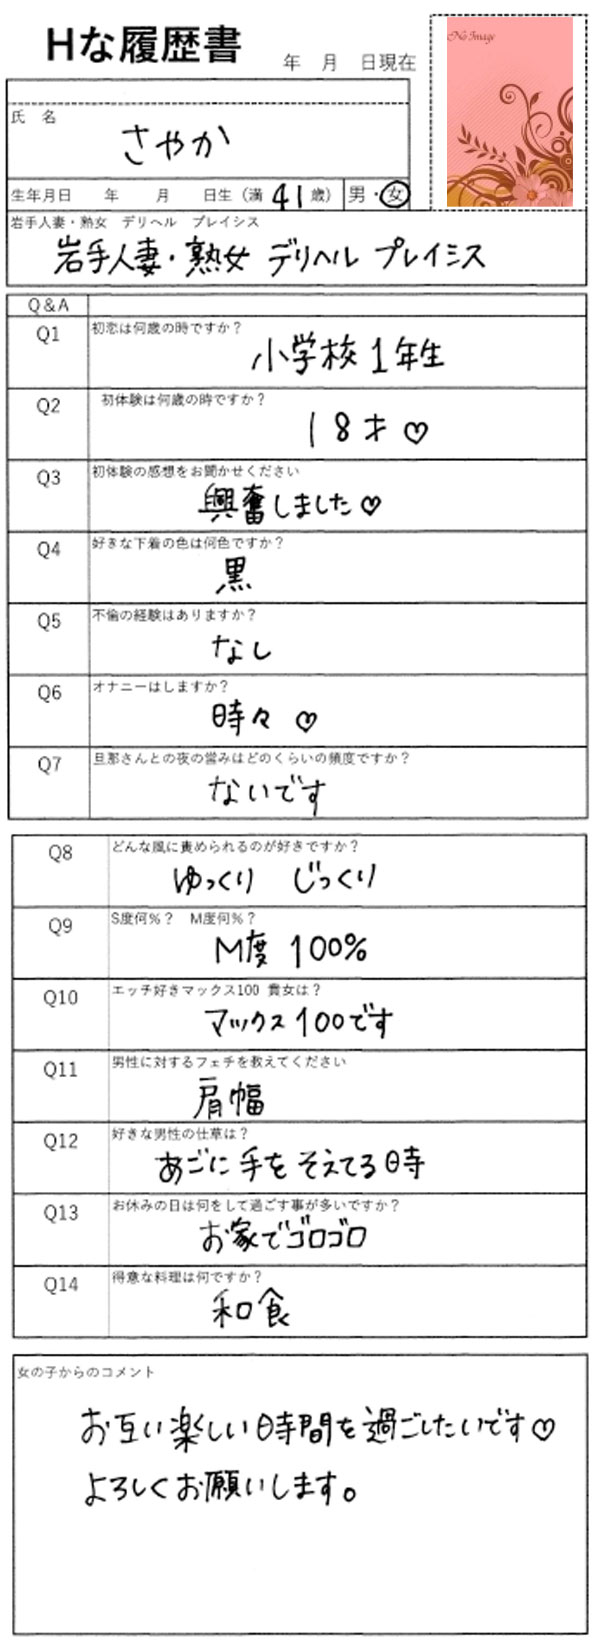 Hな履歴書
年 月 日現在
No Image
氏 名
さやか
生年月日 年 月 日生（満 41 歳） 男・女
岩手人妻・熟女 デリヘル プレイシス
岩手人妻・熟女 デリヘル プレイシス
Q&A
Q1 初恋は何歳の時ですか？
小学校1年生
Q2 初体験は何歳の時ですか？
18才♡
Q3 初体験の感想をお聞かせください
興奮しました♡
Q4 好きな下着の色は何色ですか？
黒
Q5 不倫の経験はありますか？
なし
Q6 オナニーはしますか？
時々 ♡
Q7 旦那さんとの夜の営みはどのくらいの頻度ですか？
ないです
Q8 どんな風に責められるのが好きですか？
ゆっくり じっくり
Q9 S度何％？ M度何％？
M度 100%
Q10 エッチ好きマックス100 貴女は？
マックス100です
Q11 男性に対するフェチを教えてください
肩幅
Q12 好きな男性の仕草は？
あごに手をそえてる時
Q13 お休みの日は何をして過ごす事が多いですか？
お家でゴロゴロ
Q14 得意な料理は何ですか？
和食
女の子からのコメント
お互い楽しい時間を過ごしたいです♡
よろしくお願いします。